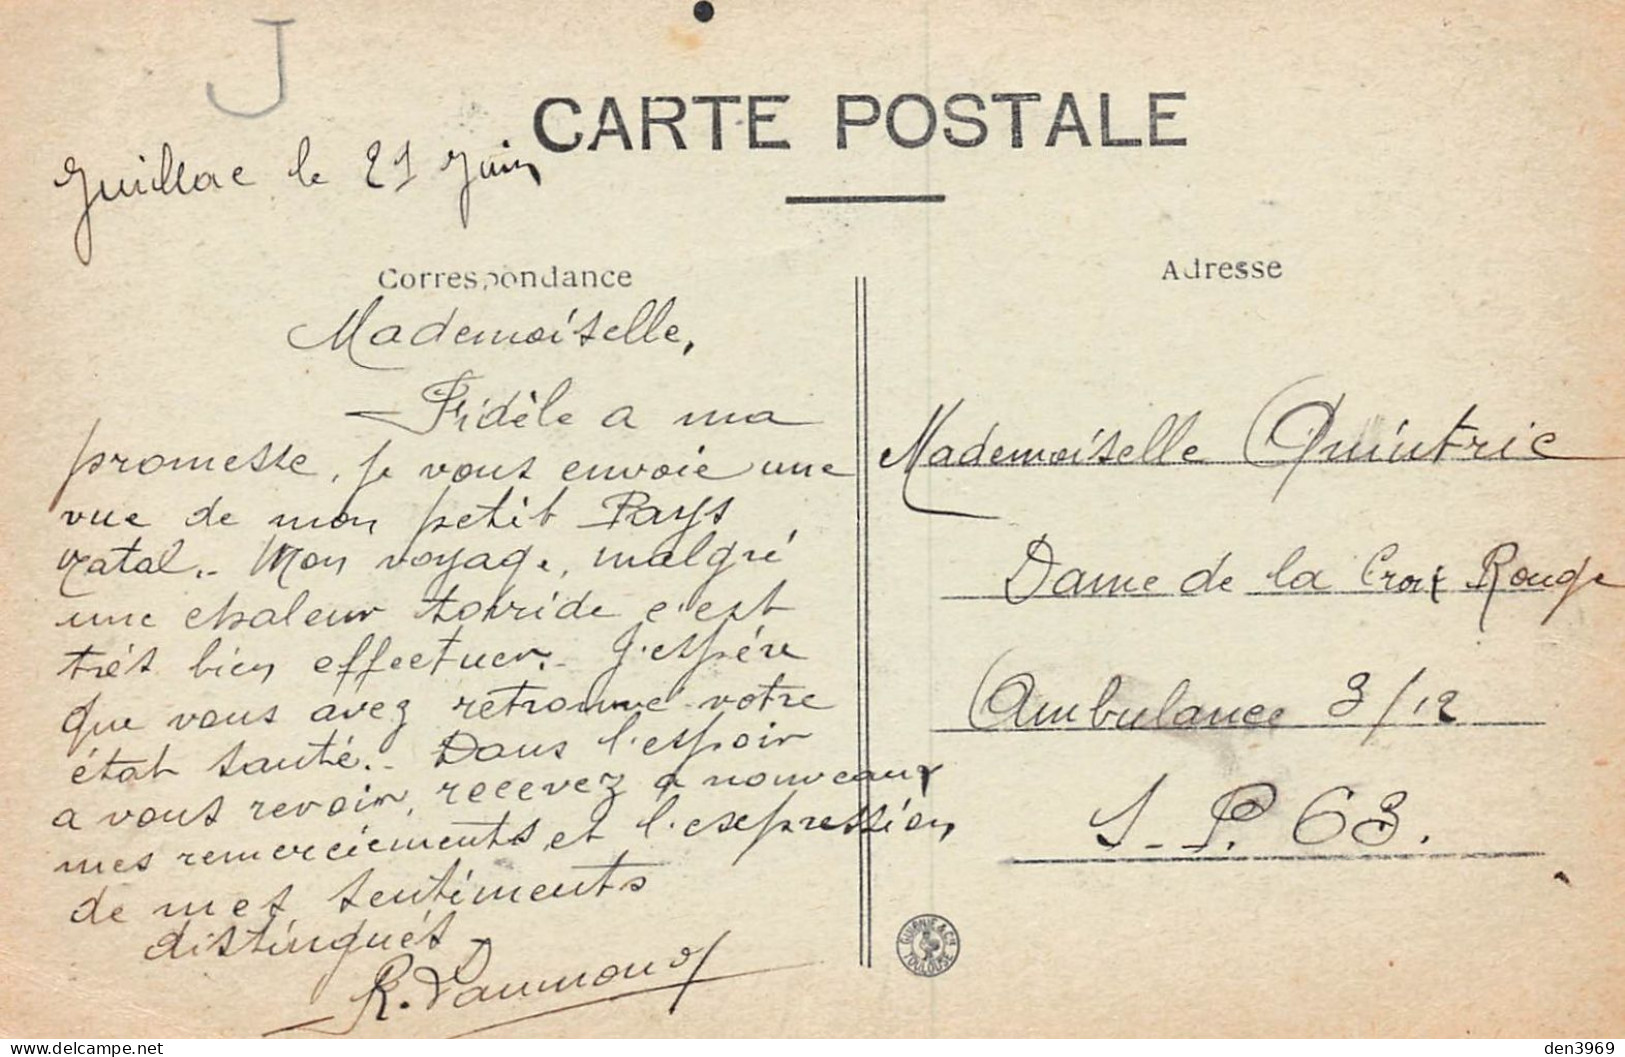 J
CARTE POSTALE
Guillac le 21 Juin
Correspondance
Mademoiselle,
Fidèle a ma
promesse, je vous envoie une
vue de mon petit Pays
natal.. Mon voyage, malgré
une chaleur torride c'est
trés bien effectuer.. J'espére
que vous avez retrouvé votre
état santé.. Dans l'espoir
a vous revoir, recevez a nouveaux
mes remerciements et l'expression
de mes sentiments
distingués
Adresse
Mademoiselle Quintric
Dame de la Croix Rouge
Ambulance 3/12
S. P. 63.
GUIRNIE & Cie TOULOUSE
den3969